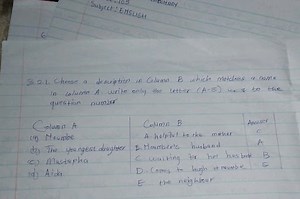 Subject: ENGLISH
2.1. Choose a description in Column B which matches a name
in column A. write only the letter (A-E) next to the
question number
Column A Column B Answer
A. helpful to the mother C
b) The youngest daughter B. Mmambe's husband A
c) Mostapha C. waiting for her husband B
d) Alda D. Comes to laugh at
E. the neighbour